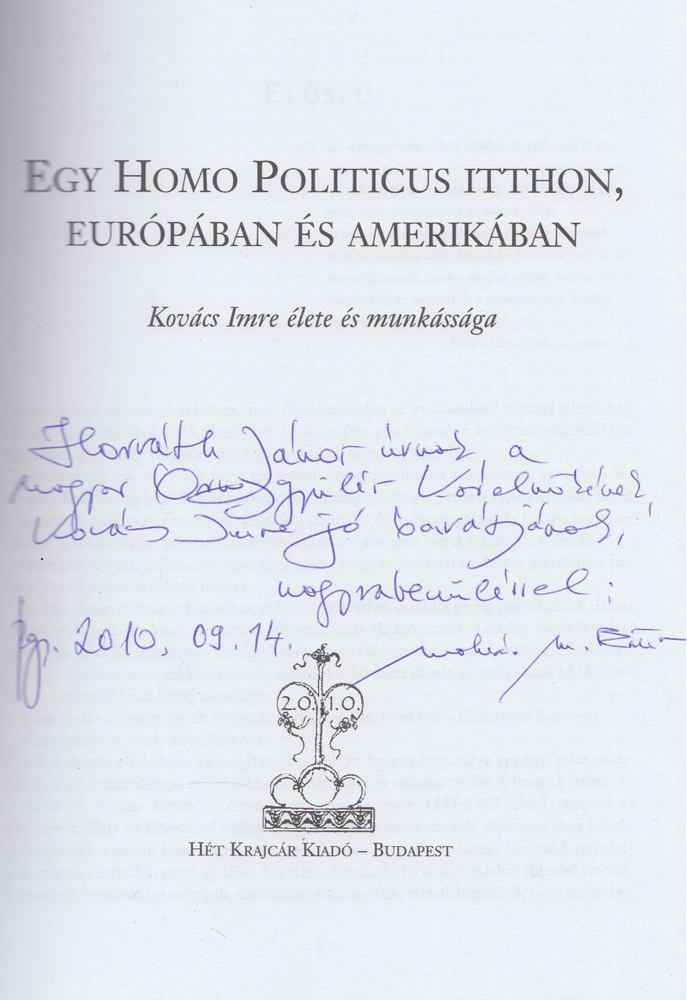 EGY HOMO POLITICUS ITTHON,
EURÓPÁBAN ÉS AMERIKÁBAN
Kovács Imre élete és munkássága
Horváth János úrnak a
magyar Országgyűlés Korelnökének,
Kovács Imre jó barátjának,
nagyrabecsüléssel:
Bp. 2010. 09. 14.
2.0.1.0.
HÉT KRAJCÁR KIADÓ – BUDAPEST